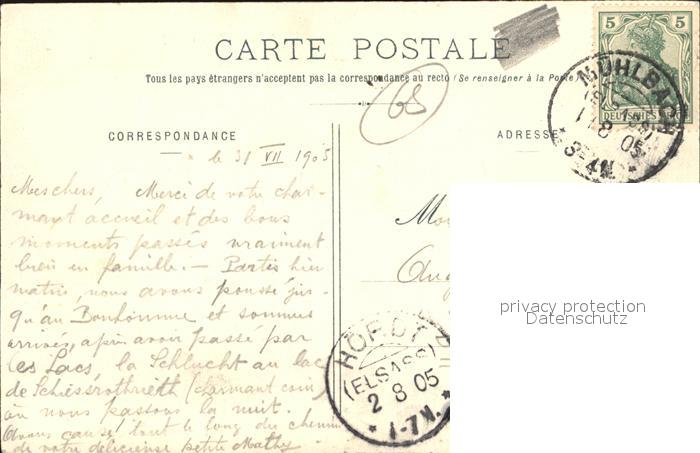 CARTE POSTALE
Tous les pays étrangers n'acceptent pas la correspondance au recto (Se renseigner à la Poste)
68
CORRESPONDANCE
ADRESSE
5 5
DEUTSCHES REICH
MÜHLBACH
1 8 05
3-4N.
le 31 VII 1905
Mes chers, Merci de votre char-
mant accueil et des bons
moments passés vraiment
bien en famille. — Partis hier
matin, nous avons poussé jus-
qu'au Bonhomme et sommes
arrivés, après avoir passé par
les Lacs, la Schlucht au lac
de Schiessrothrieth (charmant coin)
où nous passons la nuit.
Avons causé tout le long du chemin
de votre délicieuse petite Mathy
Mo
Aug
HÖRDT
(ELSASS)
2 8 05
1-7N.
privacy protection
Datenschutz